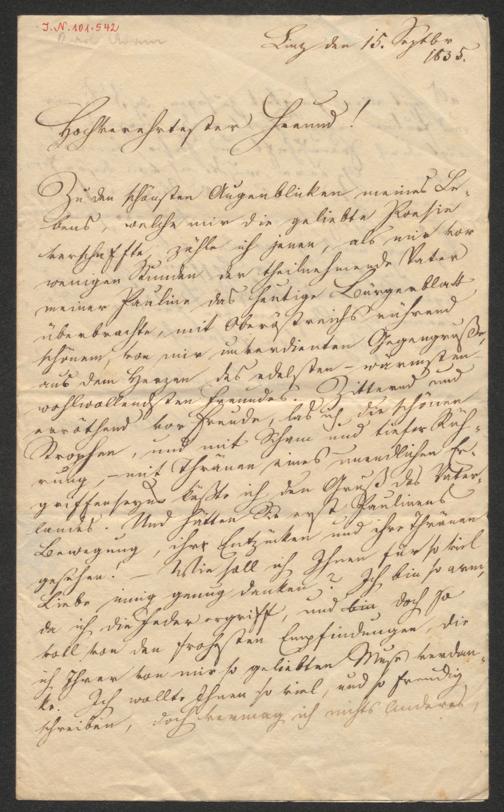 J.N. 101.542
Linz den 15. Septbr
1835.
Hochverehrtester Freund!
Zu den schönsten Augenblicken meines Le-
bens, welche mir die geliebte Poesie
verschaffte, zähle ich jenen, als mir vor
wenigen Stunden der theilnehmende Vater
meiner Pauline das heutige Bürgerblatt
überbrachte, mit Oberöstreichs rührend
schönem, von mir unverdienten Gegengruße,
aus dem Herzen des edelsten – wärmsten –
wohlwollendsten Freundes. Zitternd und
erröthend vor Freude, las ich die schönen
Strophen, und mit Scham und tiefer Rüh-
rung, – mit Thränen eines unendlichen Er-
griffenseyns küßte ich den Gruß des Vater-
landes. Und hätten Sie erst Paulinens
Bewegung, ihr Entzücken und ihre Thränen
gesehen! – Wie soll ich Ihnen für so viel
Liebe innig genug danken? Ich bin so arm,
da ich die Feder ergriff, und bin doch so
voll von den frohsten Empfindungen, die
ich Ihrer von mir so geliebten Muse verdan-
ke. Ich wollte Ihnen so viel, und so freudig
schreiben, doch vermag ich nichts Anderes,